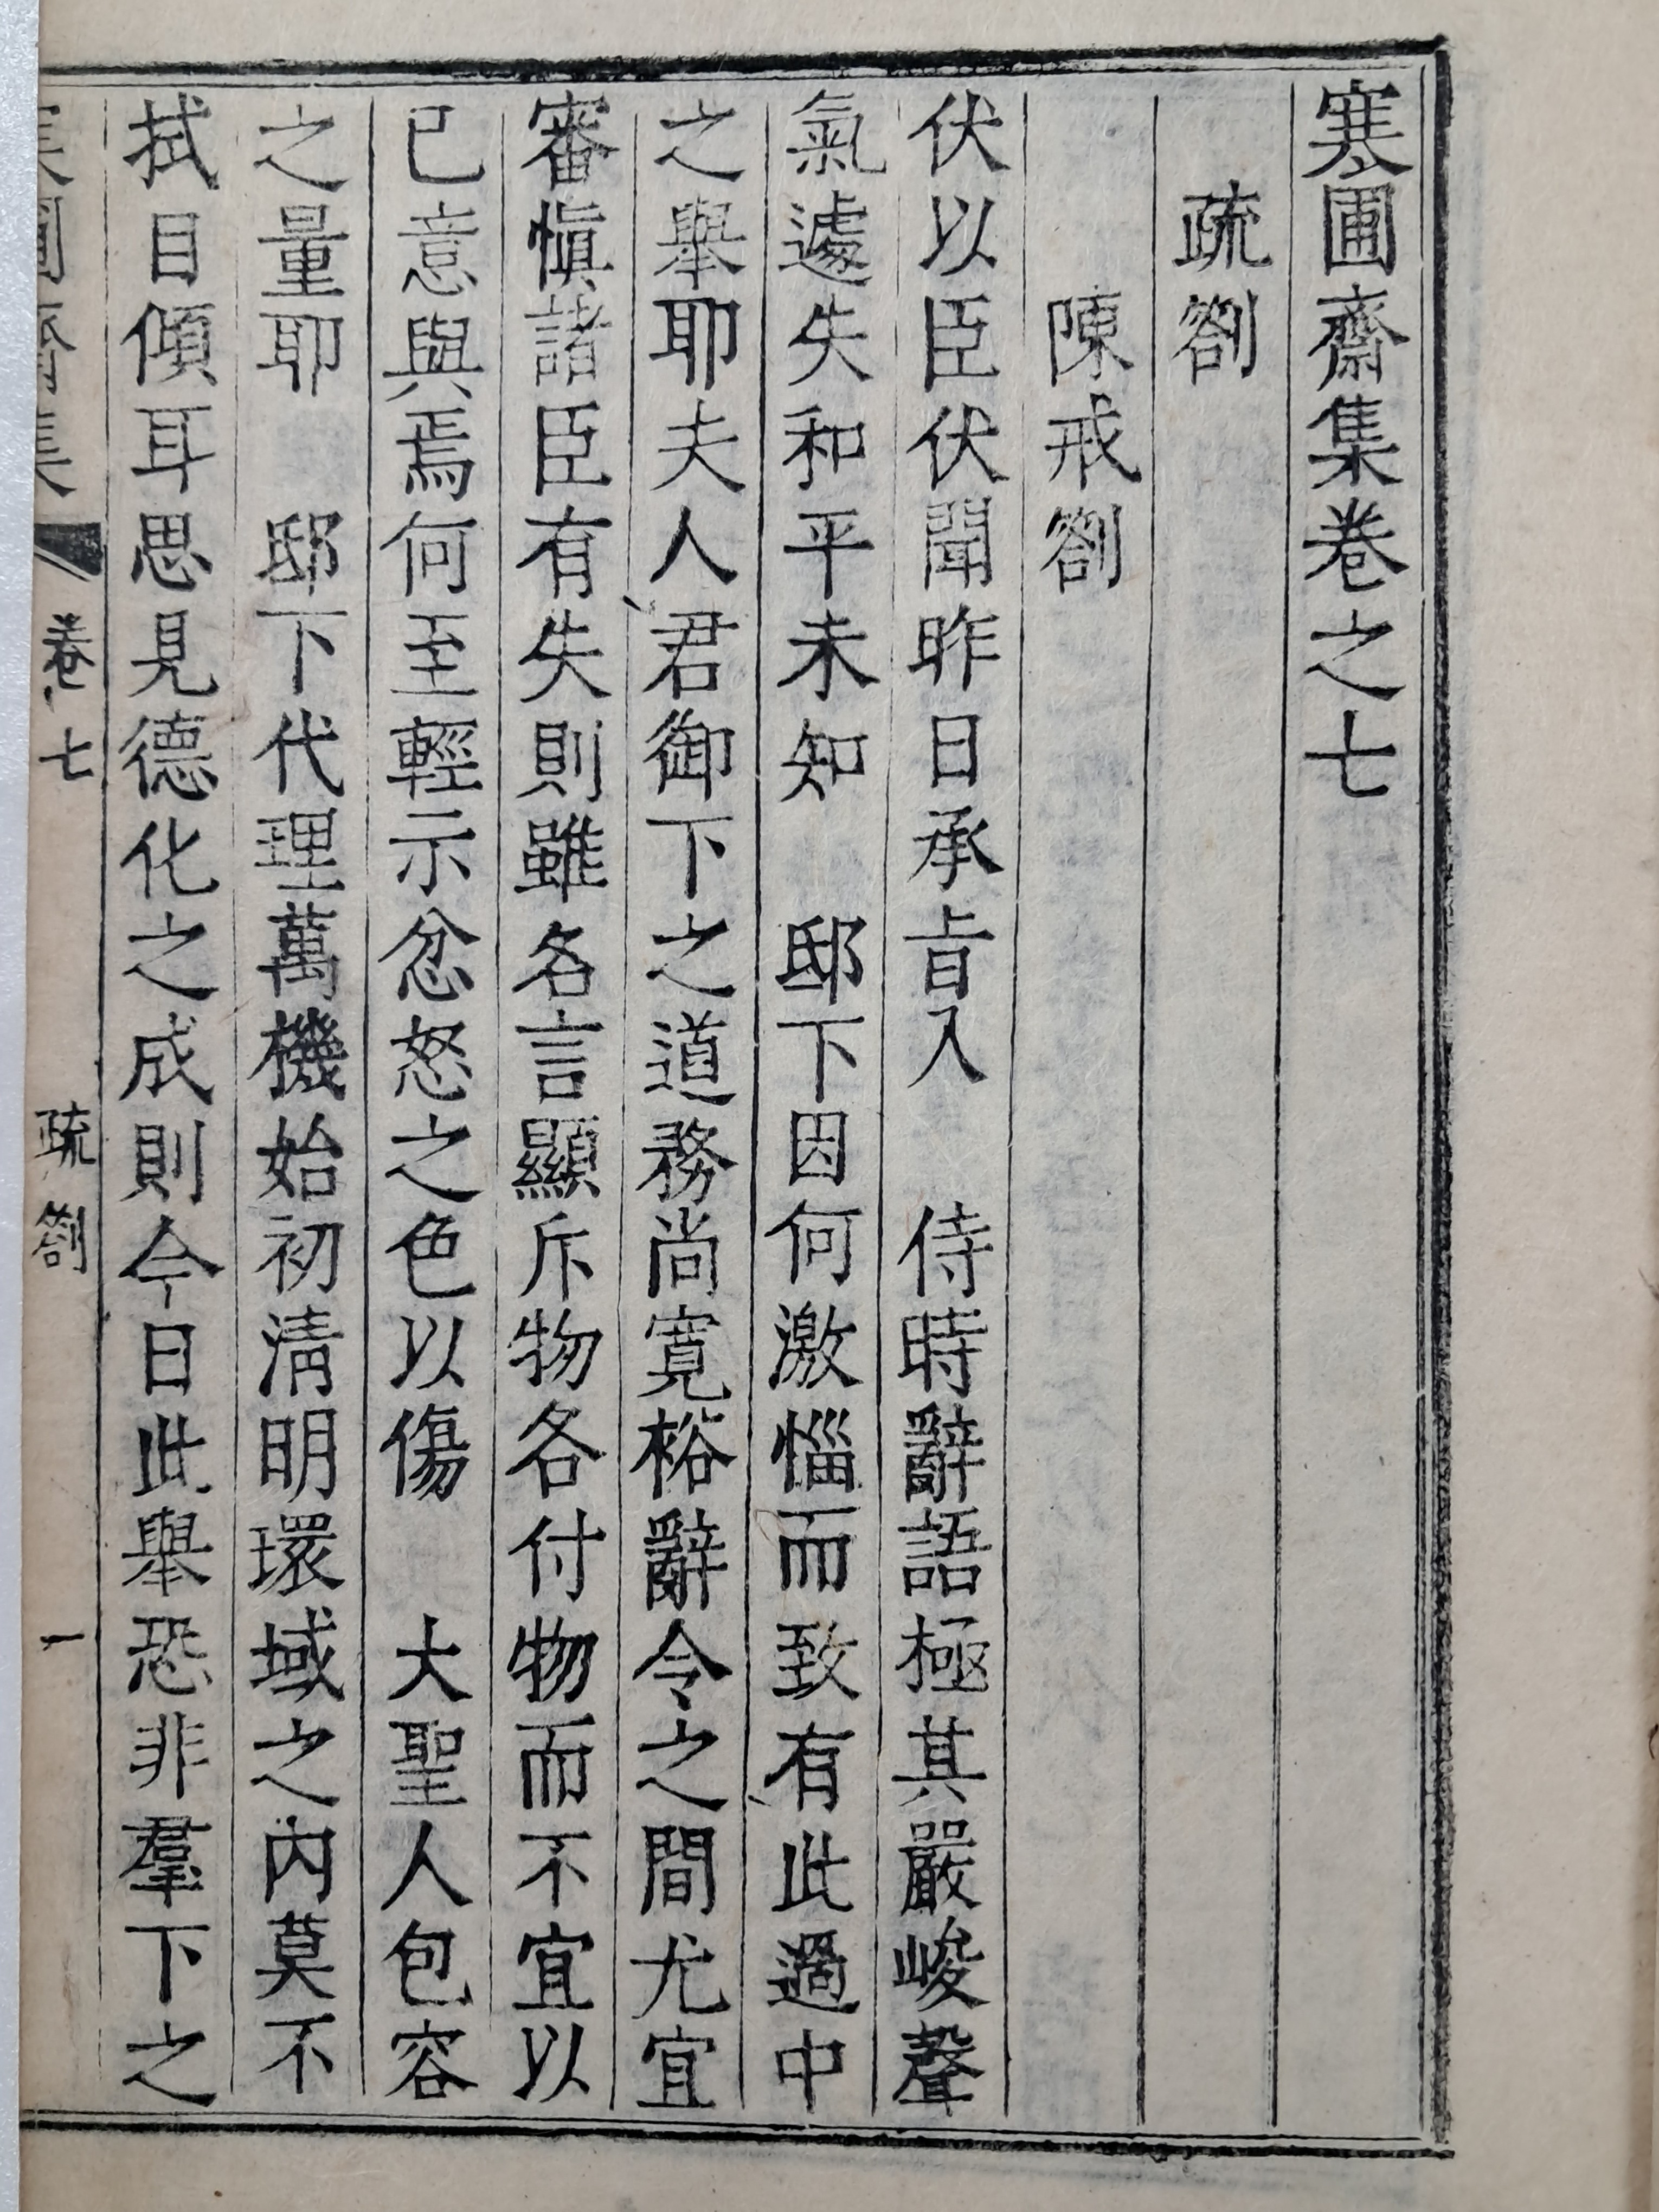 寒圃齋集卷之七
疏劄
陳戒劄
伏以臣伏聞昨日承旨入　侍時辭語極其嚴峻聲
氣遽失和平未知　邸下因何激惱而致有此過中
之舉耶夫人君御下之道務尚寬裕辭令之間尤宜
審愼諸臣有失則雖名言顯斥物各付物而不宜以
己意與焉何至輕示忿怒之色以傷　大聖人包容
之量耶　邸下代理萬機始初淸明環域之內莫不
拭目傾耳思見德化之成則今日此舉恐非羣下之
寒圃齋集　卷七　疏劄　一